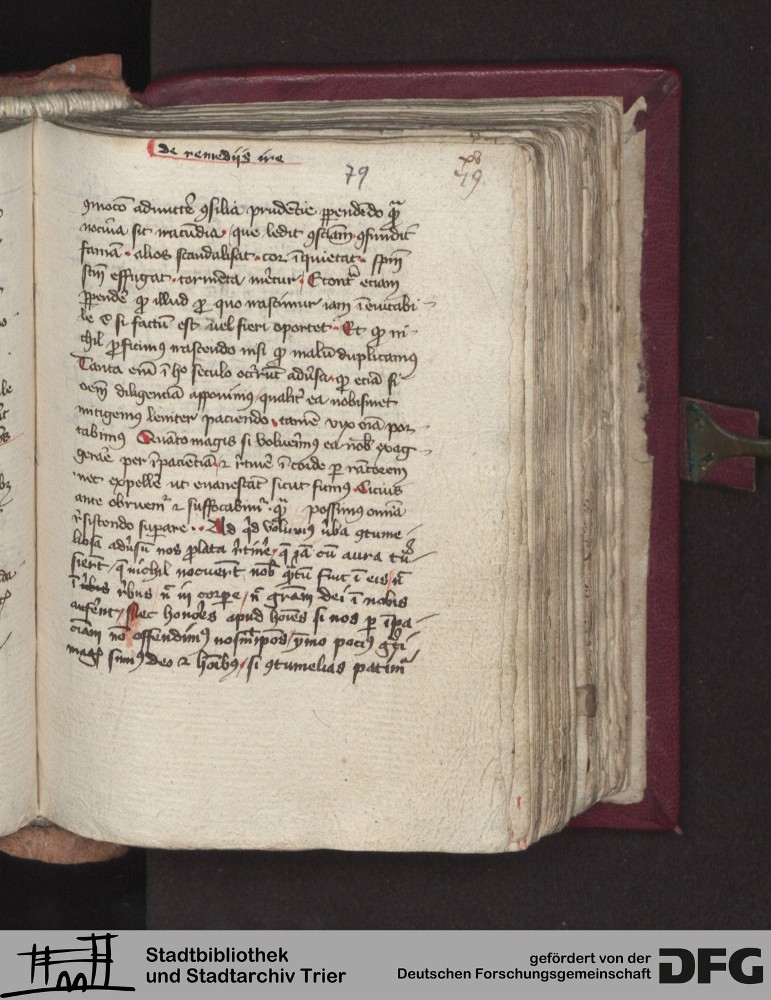 de remedijs ire
79
49
ꝯmocō admittē ꝯsilia prudētie ꝑpendēdo qͣ
nociua sit iracūdia que ledit ꝯsciam ꝯfundit
famam alios scandalisat cor īquietat spm̄
scm̄ effugat tormēta mēcur Econtͣ eciam
ꝑpendē ꝙ illud ꝓ quo irascimur iam īeuitabi
le ē si factū est uel fieri oportet Et ꝙ ni
chil ꝓficimus irascendo nisi ꝙ malū duplicamus
Tanta em̄ ī hͦ seculo occ̄rūt adūsa ꝙ eciā si
oēm diligenciā apponimus qualitͥ ea nobismet
mitigemus leniter paciendo tamē vix oīa por
tabimus Quāto magis si voluerimus ea nob̄ exag
gerāe per īpacienciā ⁊ r̄tinē ī corde ꝑ rācorem
nec expellē ut euanescāt sicut fumus Cicius
ante obruemͬ ⁊ suffocabimͬ qͣ possimus omnia
r̄sistendo suꝑare Ad qͥd volumus ūba ꝯtume
liosa adūsū nos ꝓlata r̄tinē q̄ iā cū aura tͣn
sierūt q̄ nichil nocuerūt nob̄ qͣtū fuit ī eis n̄
ī rebus n̄ in corpe n̄ gr̄am dei ī nobis
auferūt Nec honores apud hoīes si nos ꝑ īpa
ciām nō offendimꝰ nosmͭipos ymo pociꝰ gͣti
magͥs sumꝰ deo ⁊ hoībꝰ si ꝯtumelias patimͬ
Stadtbibliothek
und Stadtarchiv Trier
gefördert von der
Deutschen Forschungsgemeinschaft
DFG